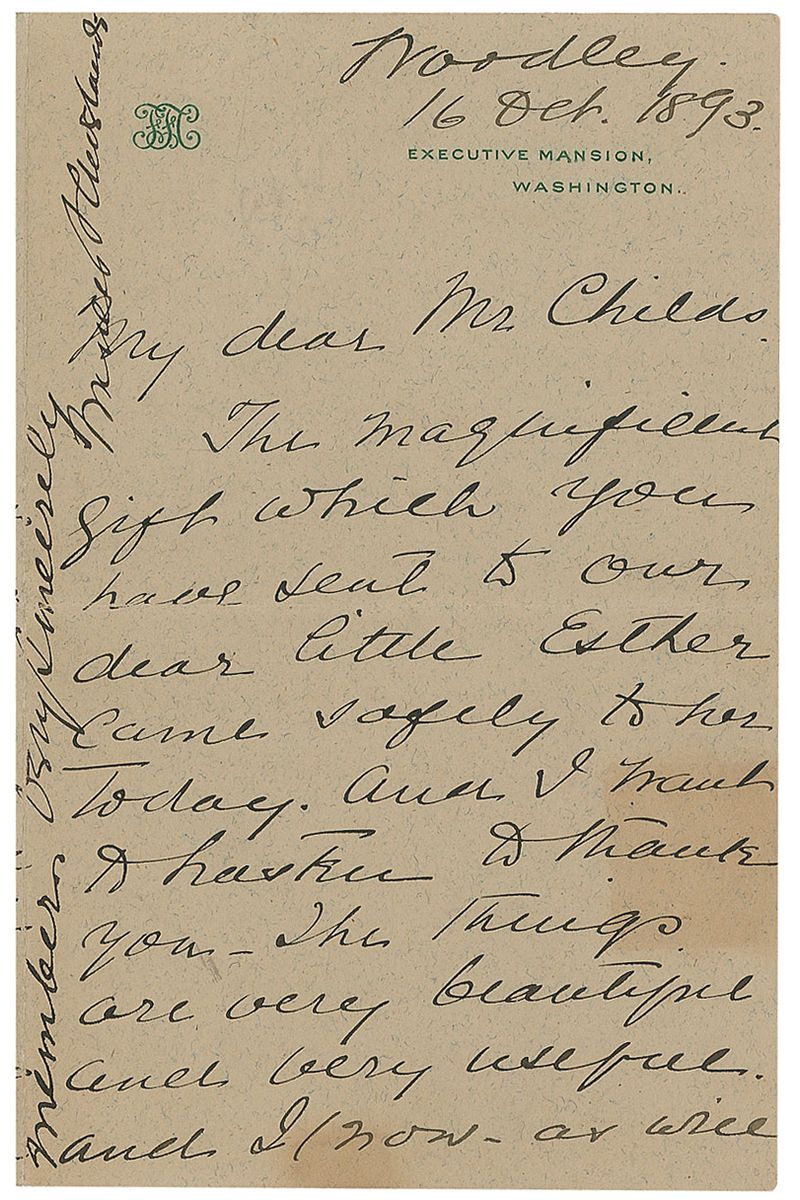 Woodley.
16 Oct. 1893.
EXECUTIVE MANSION,
WASHINGTON.
My dear Mr Childs.
The magnificent
gift which you
have sent to our
dear little Esther
came safely to her
today. And I want
to hasten to thank
you - The things
are very beautiful
and very useful.
and I (now - as will
members Very sincerely
Cleveland